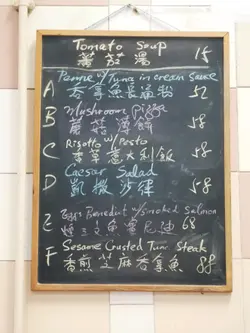 Tomato Soup
蕃茄湯 15
A Penne w/Tuna in cream sauce
吞拿魚長通粉 52
B Mushroom pizza
蘑菇薄餅 58
C Risotto w/Pesto
香草意大利飯 58
D Caesar Salad
凱撒沙律 58
E Eggs Benedict w/smoked Salmon
煙三文魚 68
F Sesame Crusted Tuna Steak
香煎芝麻吞拿魚 88